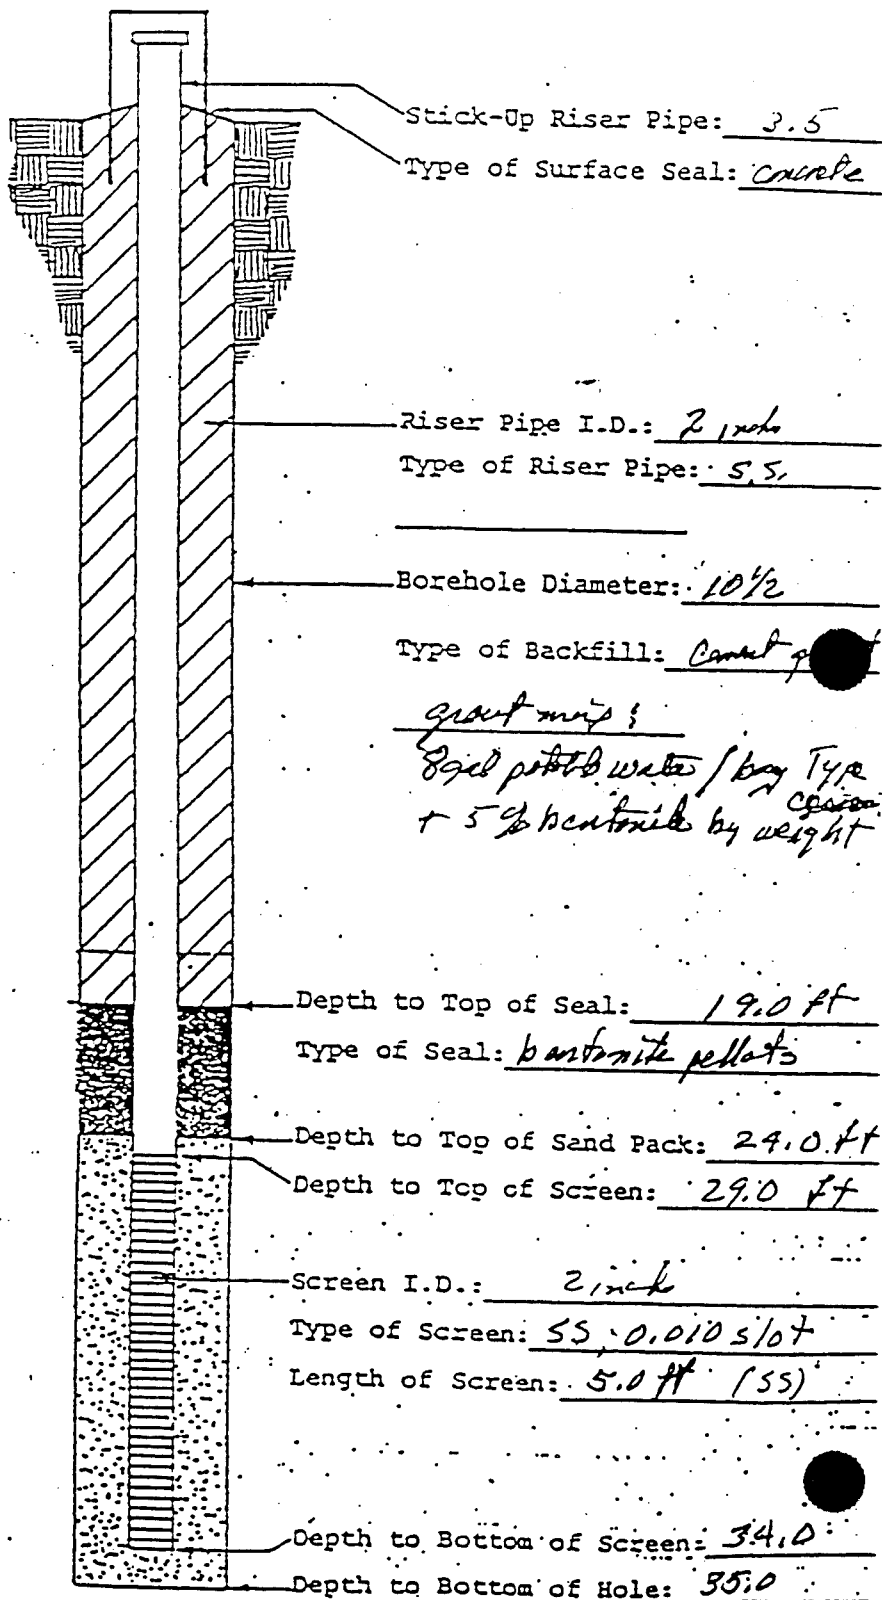 Stick-Up Riser Pipe: 3.5
Type of Surface Seal: concrete
Riser Pipe I.D.: 2 inches
Type of Riser Pipe: S.S.
Borehole Diameter: 10 1/2
Type of Backfill: Cement
grout mix:
8 gal potable water / bag Type
+ 5% bentonite by weight
Depth to Top of Seal: 19.0 ft
Type of Seal: bentonite pellets
Depth to Top of Sand Pack: 24.0 ft
Depth to Top of Screen: 29.0 ft
Screen I.D.: 2 inch
Type of Screen: SS, 0.010 slot
Length of Screen: 5.0 ft (SS)
Depth to Bottom of Screen: 34.0
Depth to Bottom of Hole: 35.0